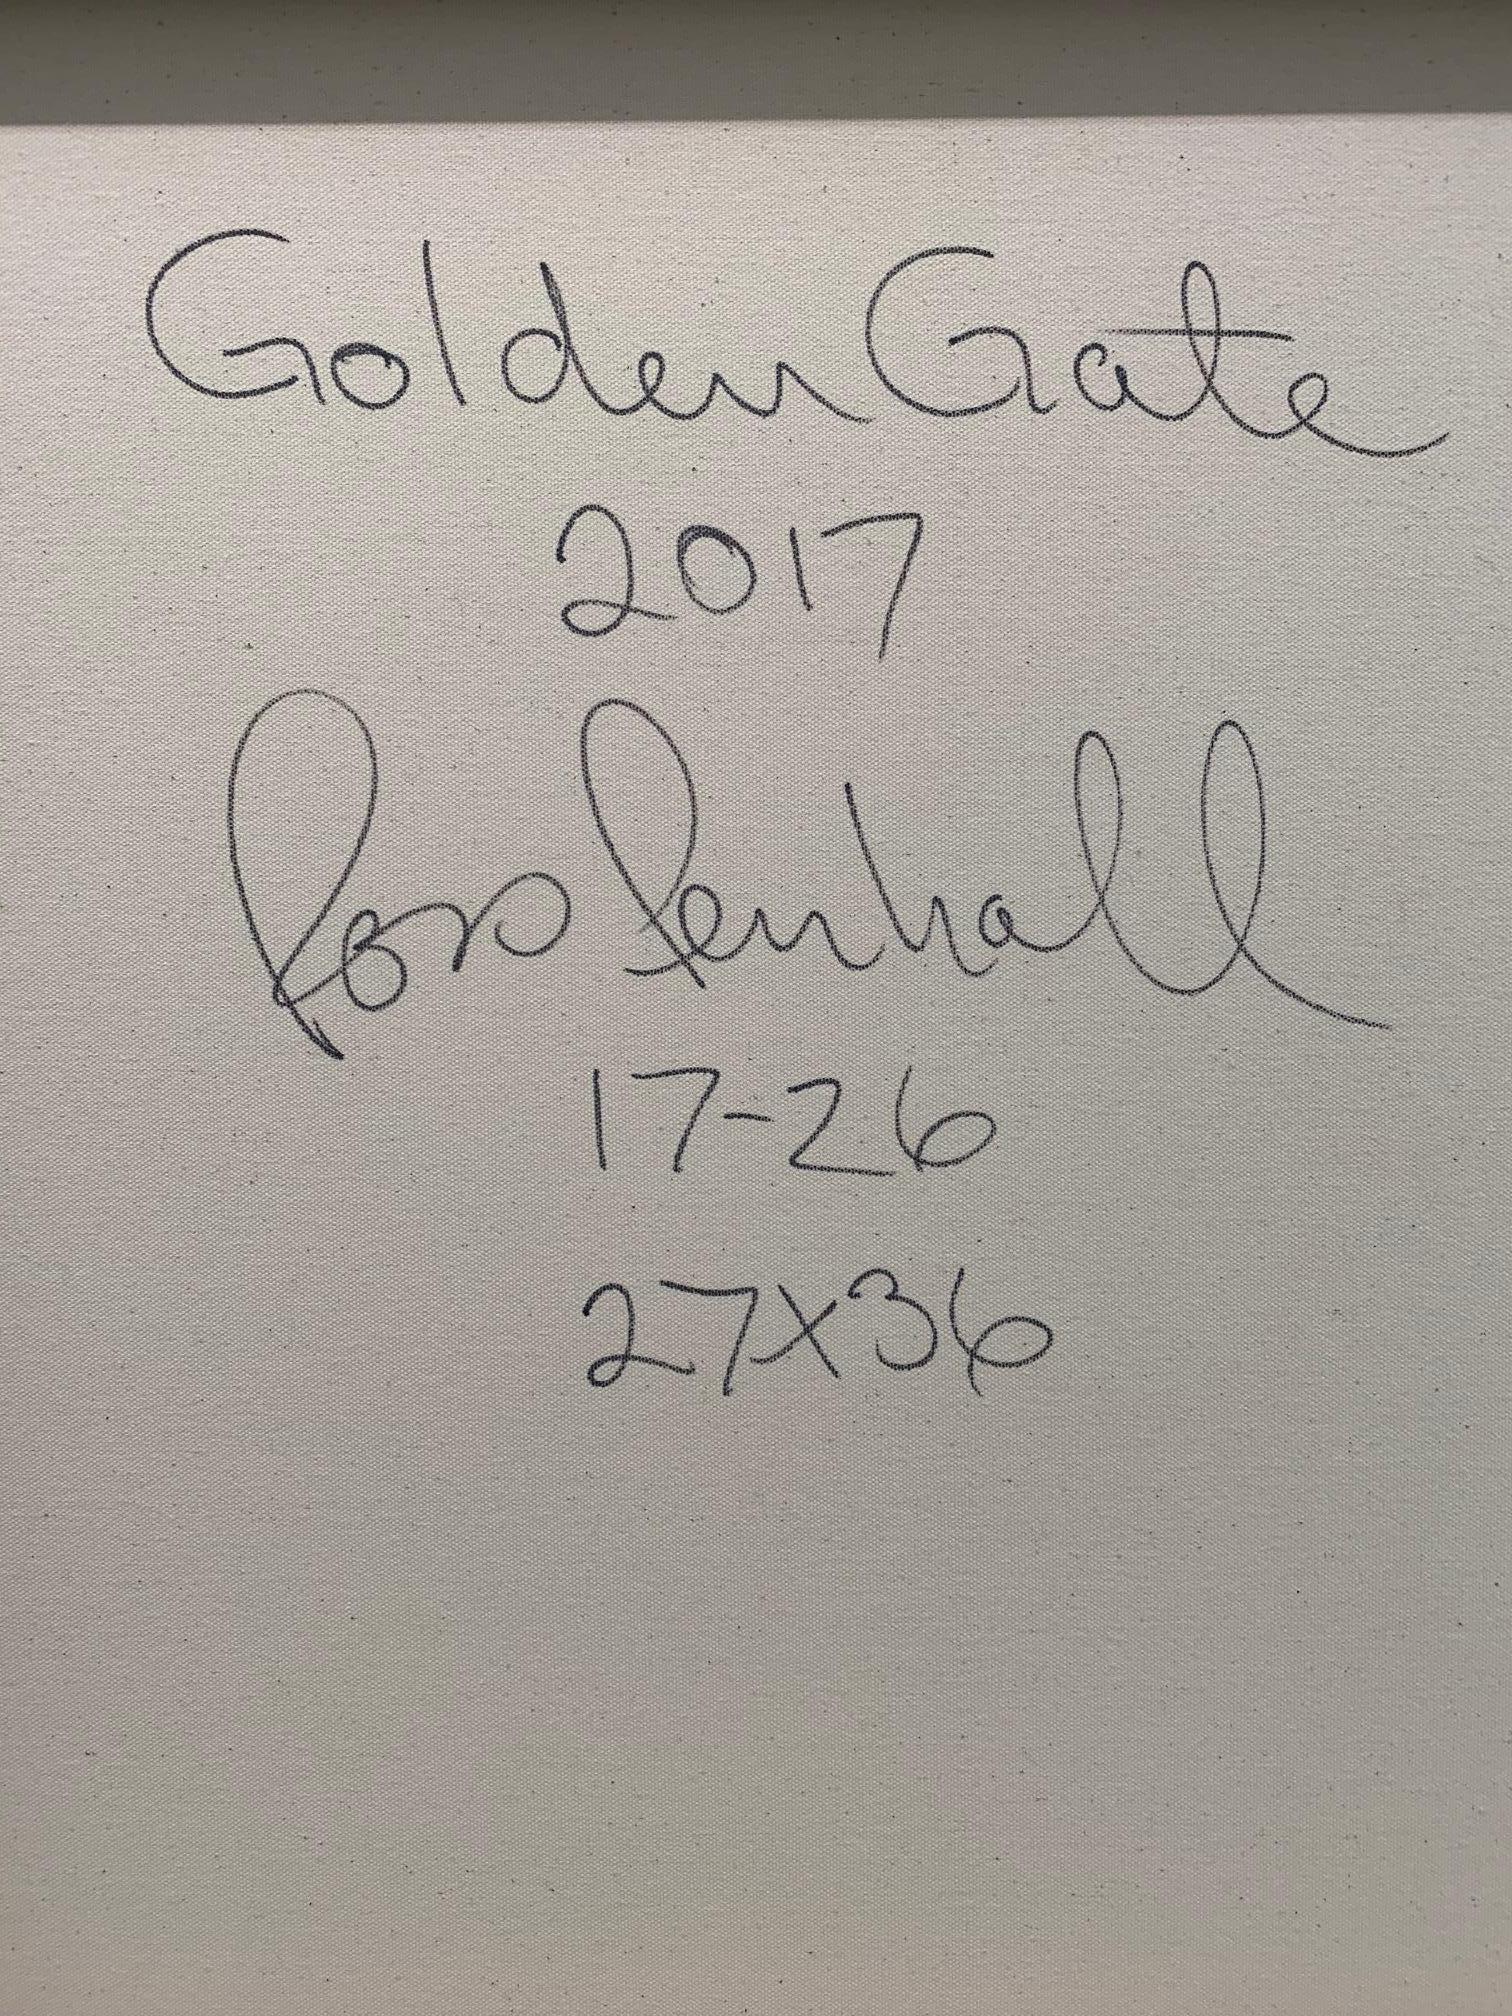 Golden Gate
2017
Ross Penhall
17-26
27x36